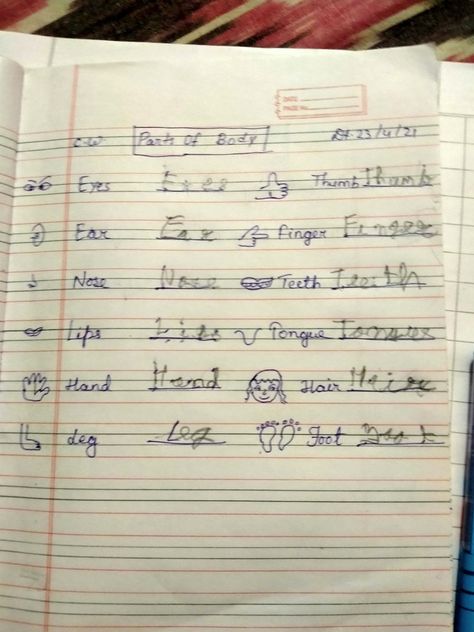 DATE
PAGE No.
C.W Parts Of Body Dt. 23/4/21
Eyes Eyes Thumb Thumb
Ear Ear Finger Finger
Nose Nose Teeth Teeth
Lips Lips Tongue Tongue
Hand Hand Hair Hair
Leg Leg Foot Foot